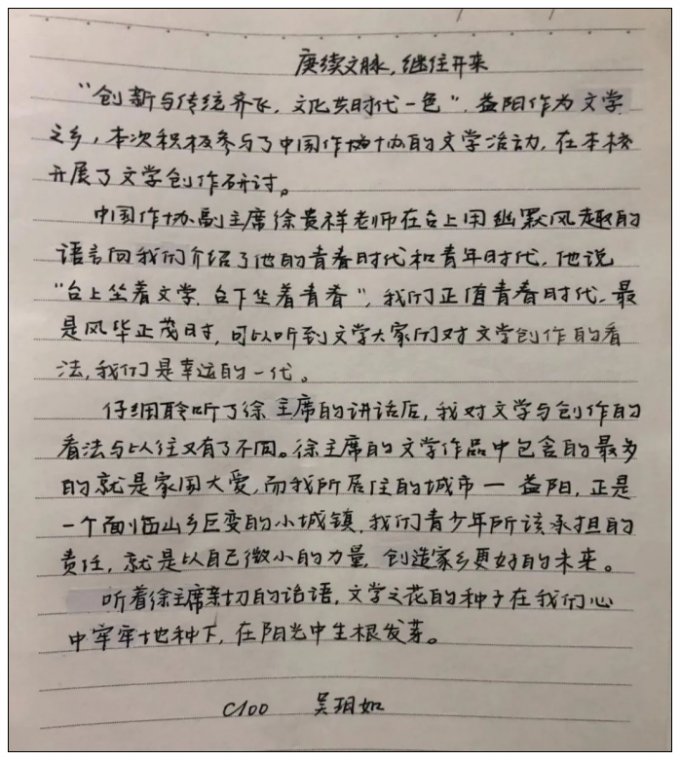 赓续文脉,继往开来
“创新与传统齐飞,文化共时代一色”,益阳作为文学
之乡,本次积极参与了中国作协的文学活动,在本校
开展了文学创作研讨。
中国作协副主席徐贵祥老师在台上用幽默风趣的
语言向我们介绍了他的青春时代和青年时代,他说
“台上坐着文学,台下坐着青春”,我们正值青春时代,最
是风华正茂时,可以听到文学大家们对文学创作的看
法,我们是幸运的一代。
仔细聆听了徐主席的讲话后,我对文学与创作的
看法与以往又有了不同。徐主席的文学作品中包含的最多
的就是家国大爱,而我所居住的城市一益阳,正是
一个面临山乡巨变的小城镇,我们青少年所该承担的
责任,就是以自己微小的力量,创造家乡更好的未来。
听着徐主席亲切的话语,文学之花的种子在我们心
中牢牢地种下,在阳光中生根发芽。
C100 吴玥如